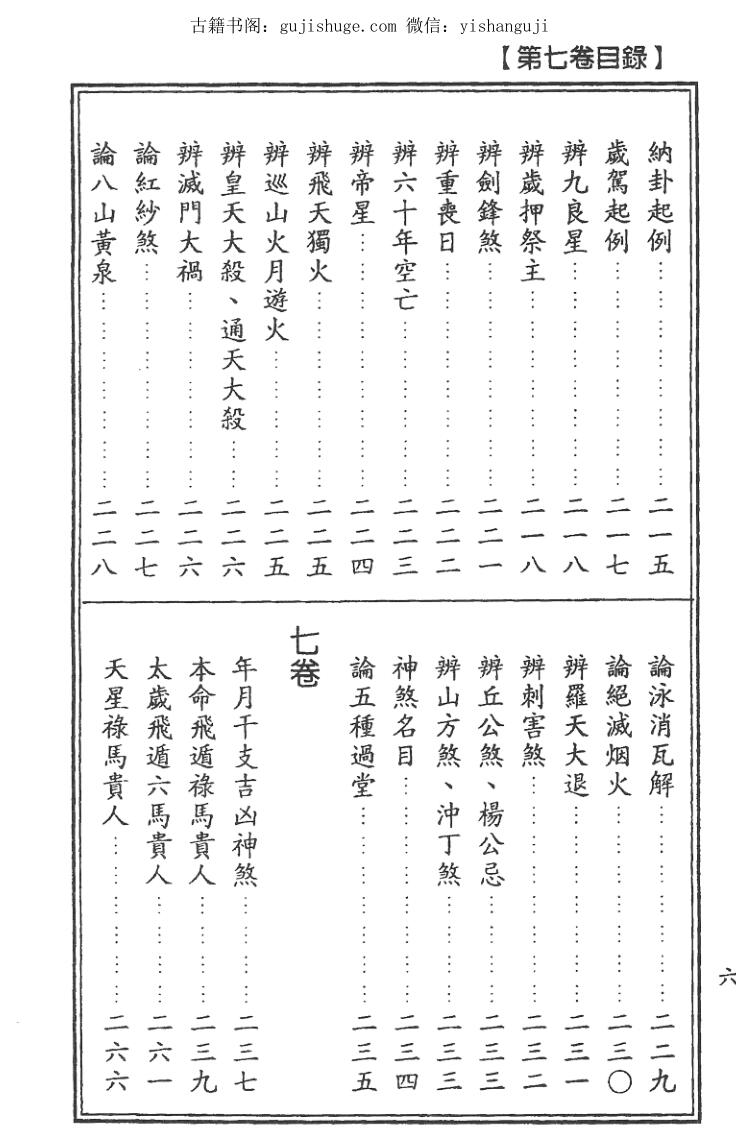 古籍书阁：gujishuge.com 微信：yishanguji
【第七卷目錄】
納卦起例………………二一五
歲駕起例………………二一七
辨九良星………………二一八
辨歲押祭主………………二一八
辨劍鋒煞………………二二一
辨重喪日………………二二二
辨六十年空亡………………二二三
辨帝星………………二二四
辨飛天獨火………………二二五
辨巡山火月遊火………………二二五
辨皇天大殺、通天大殺……二二六
辨滅門大禍………………二二六
論紅紗煞………………二二七
論八山黃泉………………二二八
論泳消瓦解………………二二九
論絕滅烟火………………二三〇
辨羅天大退………………二三一
辨刺害煞………………二三二
辨丘公煞、楊公忌…………二三三
辨山方煞、沖丁煞…………二三三
神煞名目………………二三四
論五種過堂………………二三五
七卷
年月干支吉凶神煞…………二三七
本命飛遁祿馬貴人…………二三九
太歲飛遁六馬貴人…………二六一
天星祿馬貴人………………二六六
六